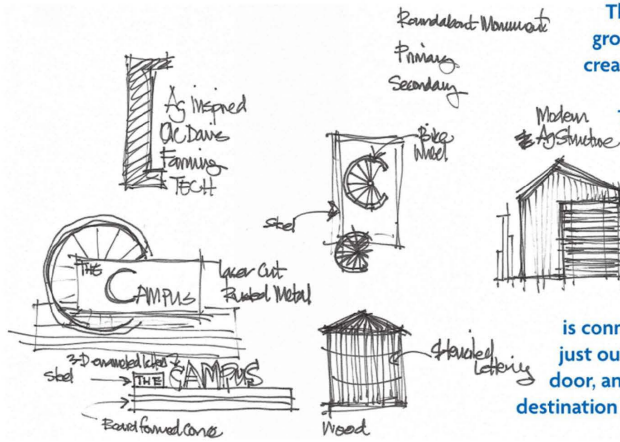 Roundabout Monument
Primary
Secondary
Th
gro
crea
Ag inspired
UC Davis
Farming
TECH
Bike
Wheel
Steel
Modern
Ag Structure
THE
CAMPUS
Laser Cut
Rusted Metal
3-D enameled letters
Steel
THE CAMPUS
Board formed conc
Stenciled
Lettering
Wood
is conn
just ou
door, an
destination